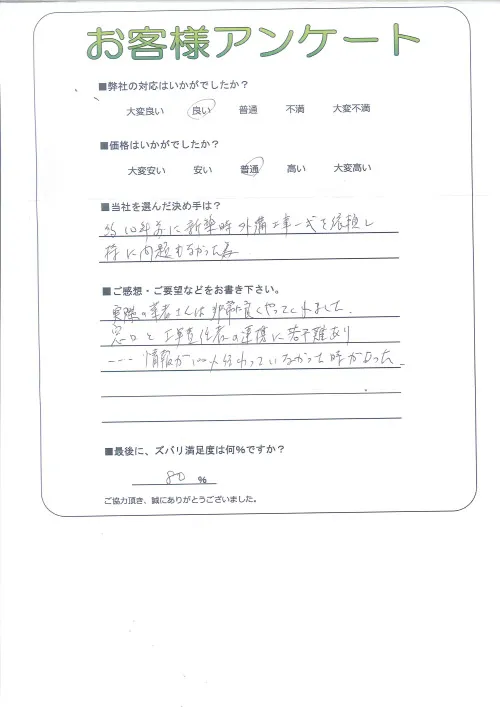 お客様アンケート
■弊社の対応はいかがでしたか？
大変良い 良い 普通 不満 大変不満
■価格はいかがでしたか？
大変安い 安い 普通 高い 大変高い
■当社を選んだ決め手は？
約10年前に新築時外構工事一式を依頼し
特に問題もなかった為
■ご感想・ご要望などをお書き下さい。
実際の業者さんは非常に良くやってくれました.
窓口と工事責任者の連携に若干難あり
---- 情報が100%伝わっていなかった時があった.
■最後に、ズバリ満足度は何％ですか？
80 %
ご協力頂き、誠にありがとうございました。